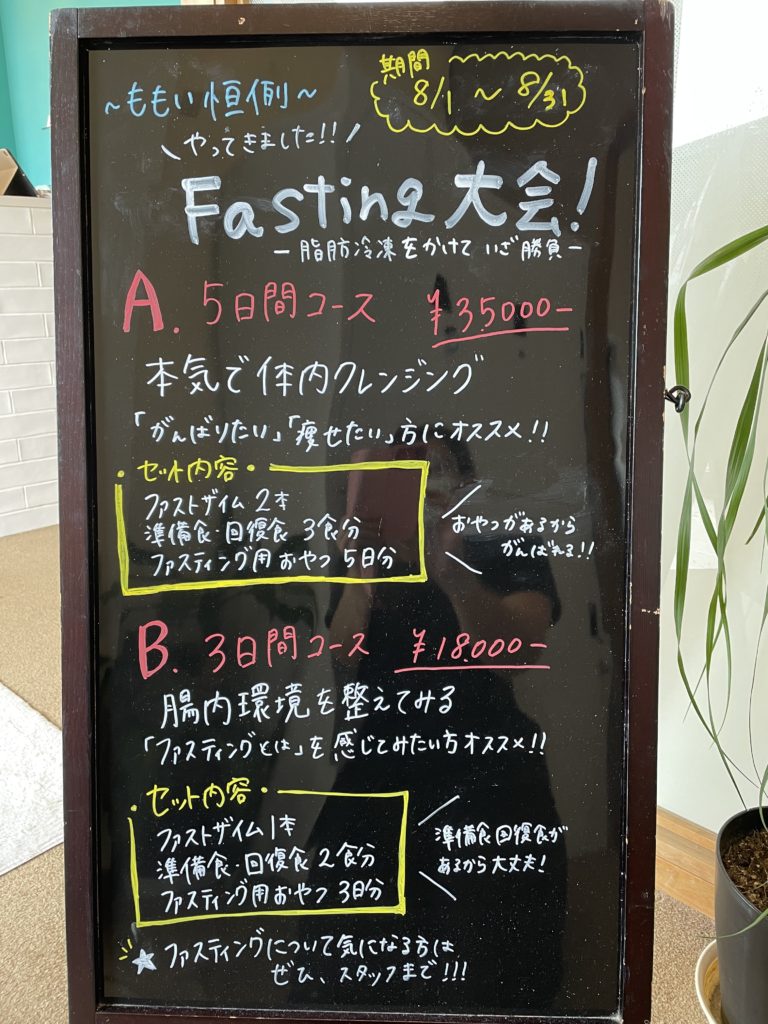 ~ももい恒例~
期間
8/1 ~ 8/31
\やってきました!!/
Fasting 大会!
-脂肪冷凍をかけて いざ勝負-
A. 5日間コース ¥35000-
本気で体内クレンジング
「がんばりたい」「痩せたい」方にオススメ!!
・セット内容・
ファストザイム 2本
準備食・回復食 3食分
ファスティング用おやつ 5日分
おやつがあるから
がんばれる!!
B. 3日間コース ¥18000-
腸内環境を整えてみる
「ファスティングとは」を感じてみたい方オススメ!!
・セット内容・
ファストザイム 1本
準備食・回復食 2食分
ファスティング用おやつ 3日分
準備食回復食が
あるから大丈夫!
☆ ファスティングについて気になる方は
ぜひ、スタッフまで!!!